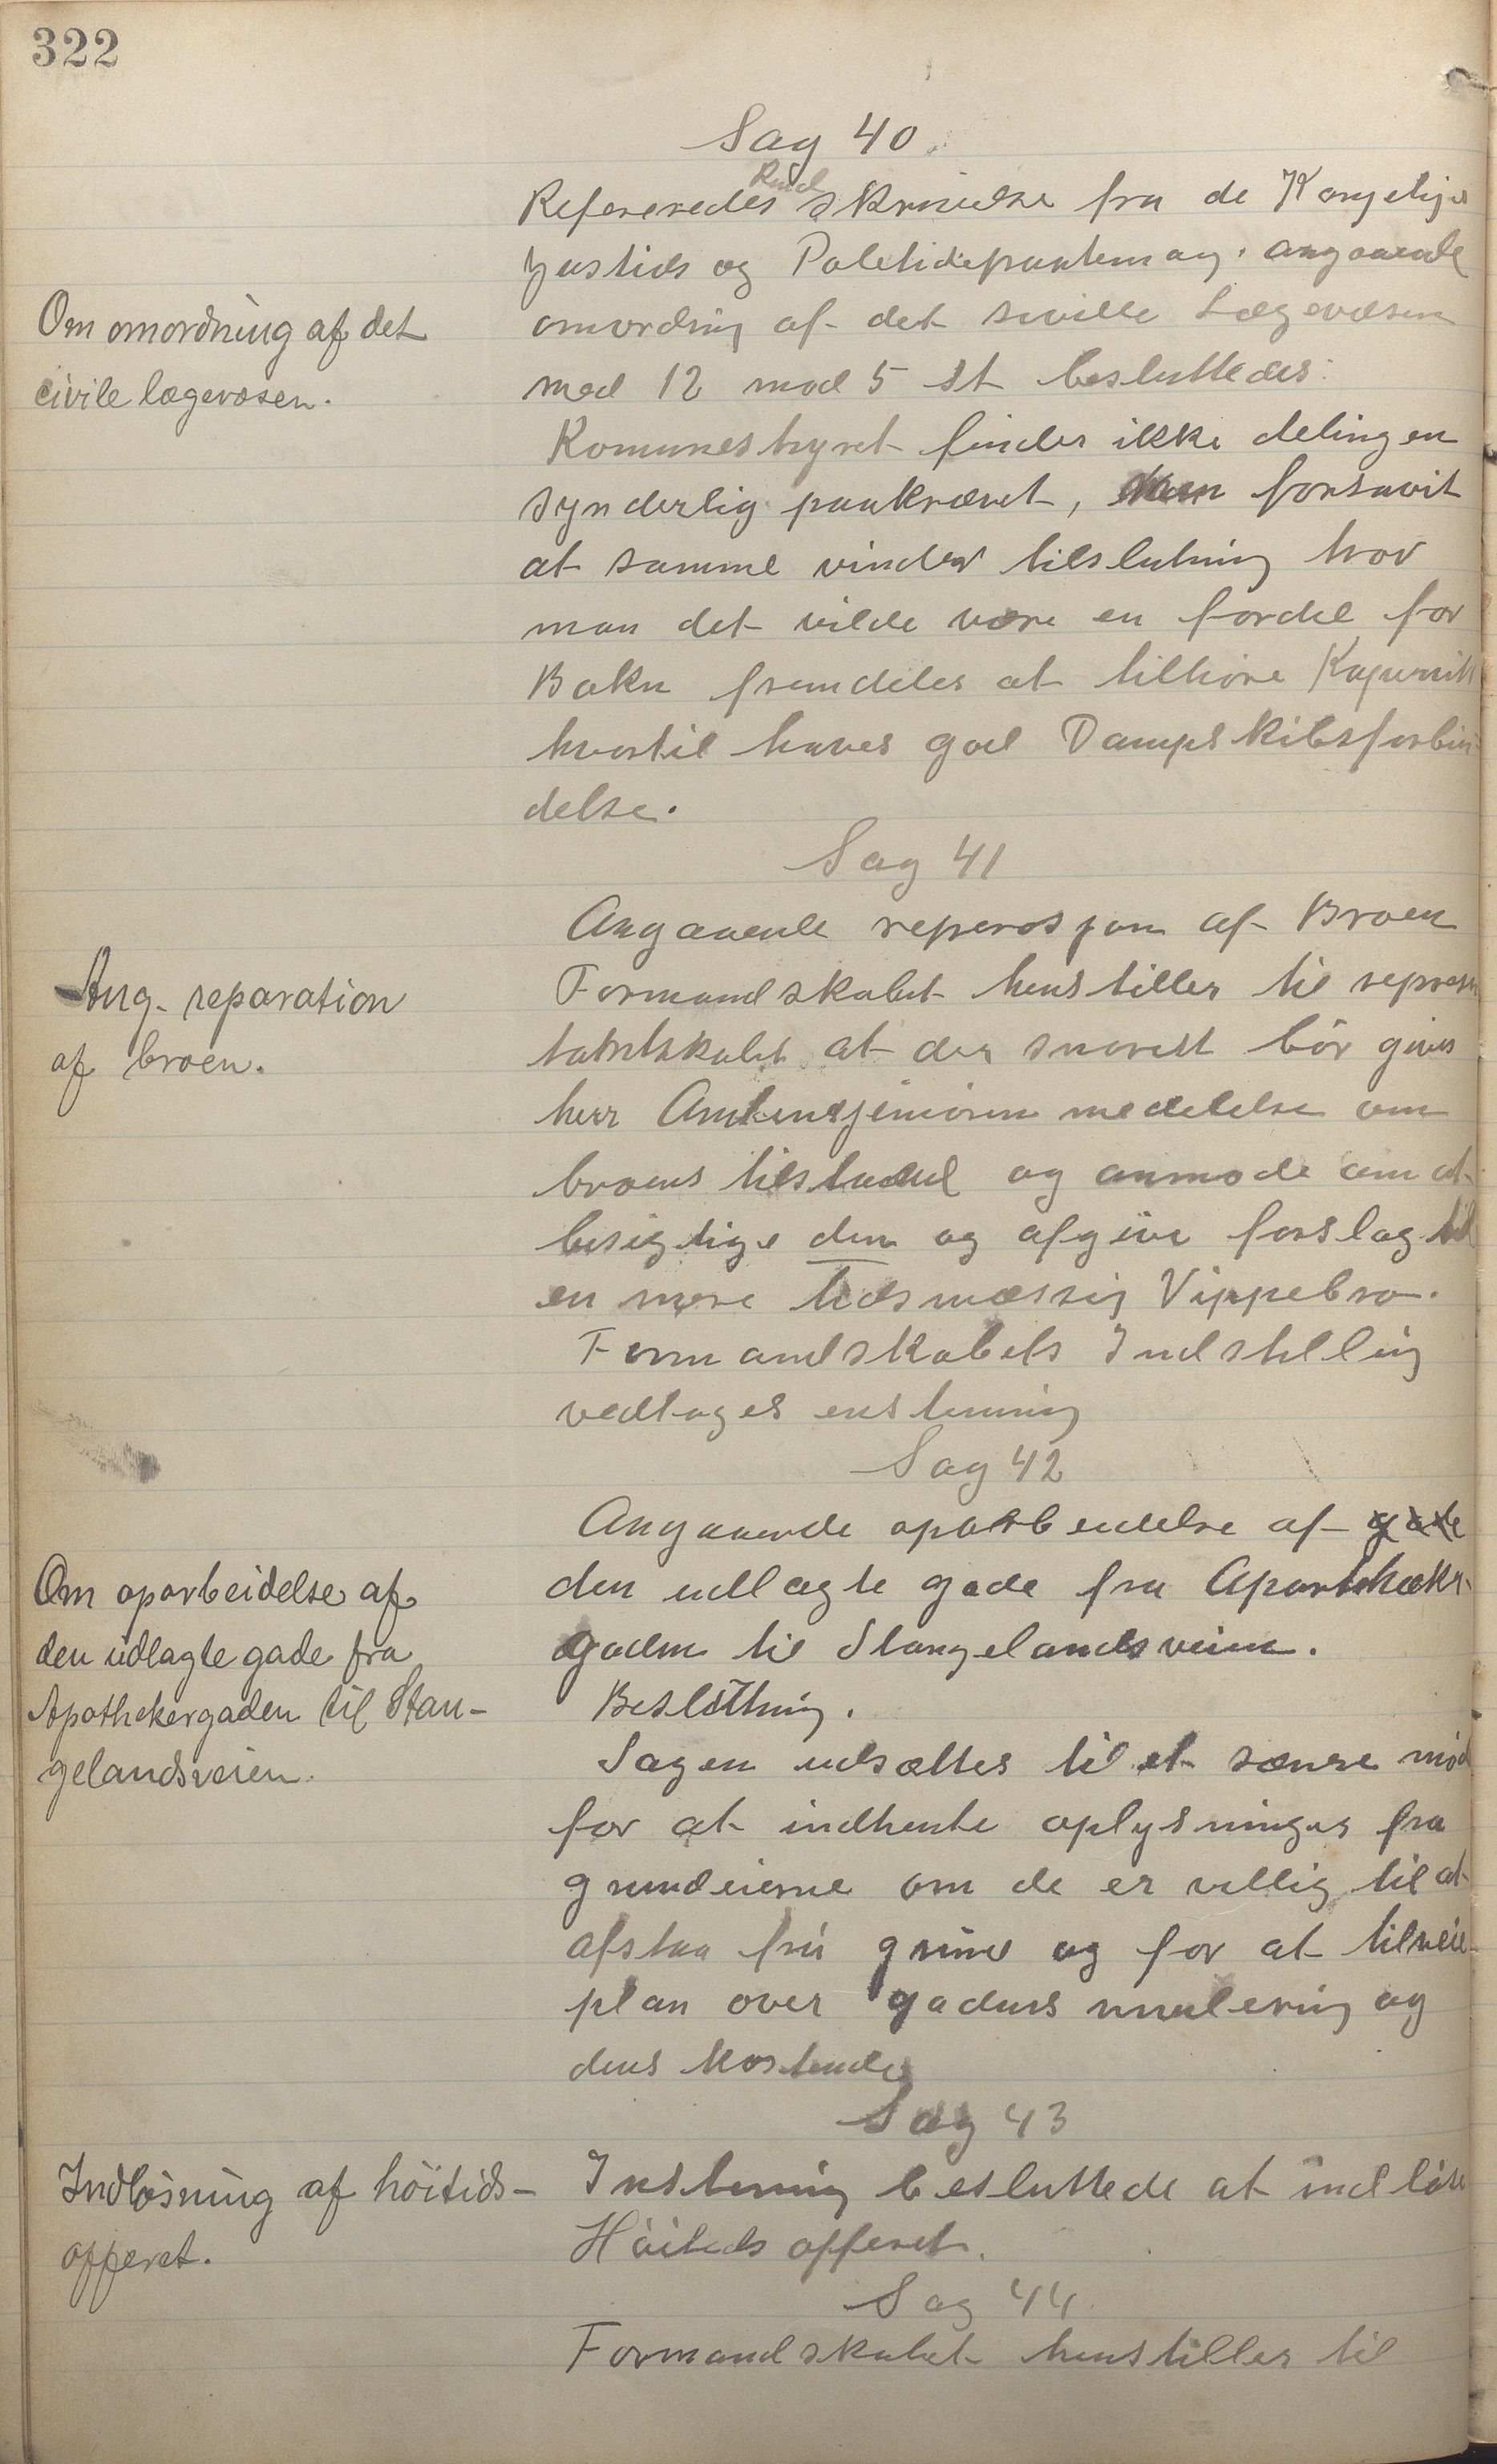 322
Sag 40.
Rund
Refereredes skrivelse fra de Kongelige
Justids og Politidepartemang. angaaende
Om omordning af det
civile lægevæsen.
omordning af det siville Lægevæsen
med 12 mod 5 st besluttedes:
Komunestyret finder ikke delingen
synderlig paakrævet, men forsavit
at samme vinder tilslutning tror
man det vilde være en fordel for
Bokn fremdeles at tilhøre Kopervik
hvortil haves god Dampskibsforbin-
delse.
Sag 41
Angaaende reperasjon af Broen
Ang. reparation
af broen.
Formandskabet henstiller til represen
tatntskabet at der snarest bör gives
herr Amtensjeniören medelelse om
broens tilstand og anmode om at
besigtige den og afgive forslag til
en mere tidsmæssig Vippebro.
Formandskabets Indstilling
vedtages enstemmig
Sag 42
Angaaende oparbeidelse af gade
Om oparbeidelse af
den udlagte gade fra
Apothekergaden til Stan-
gelandsveien.
den udlagte gade fra Aparthæker-
gaden til Stangelandsveien.
Beslutning.
Sagen udsættes til et senere möd
for at indhente oplysninger fra
grundeierne om de er villig til at
afstaa fri grund og for at tilveie-
plan over gadens nivelering og
dens kostende
Sag 43
Indløsning af höitids-
offeret.
Enstemig besluttede at indlöse
Höitids offeret.
Sag 44
Formandskabet henstiller til